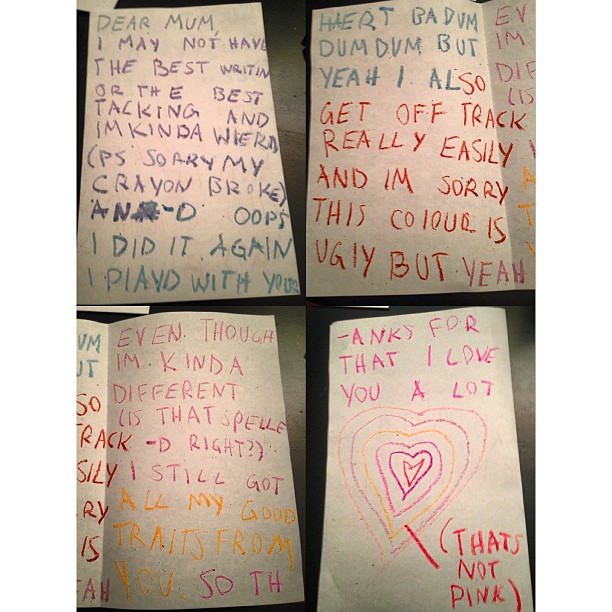 DEAR MUM,
I MAY NOT HAVE
THE BEST WRITIN
OR THE BEST
TACKING AND
IM KINDA WIERD
(PS SORRY MY
CRAYON BROKE)
AN -D OOPS
I DID IT AGAIN
I PLAYD WITH YOUR
HAERT BA DUM
DUM DUM BUT
YEAH I ALSO
GET OFF TRACK
REALLY EASILY
AND IM SORRY
THIS COLOUR IS
UGLY BUT YEAH
EV
IM
DIF
(IS
UM
UT
SO
RACK
SILY
RY
IS
AH
EVEN THOUGH
IM KINDA
DIFFERENT
(IS THAT SPELLE
-D RIGHT??)
I STILL GOT
ALL MY GOOD
TRAITS FROM
YOU. SO TH
-ANKS FOR
THAT I LOVE
YOU A LOT
(THATS
NOT
PINK)